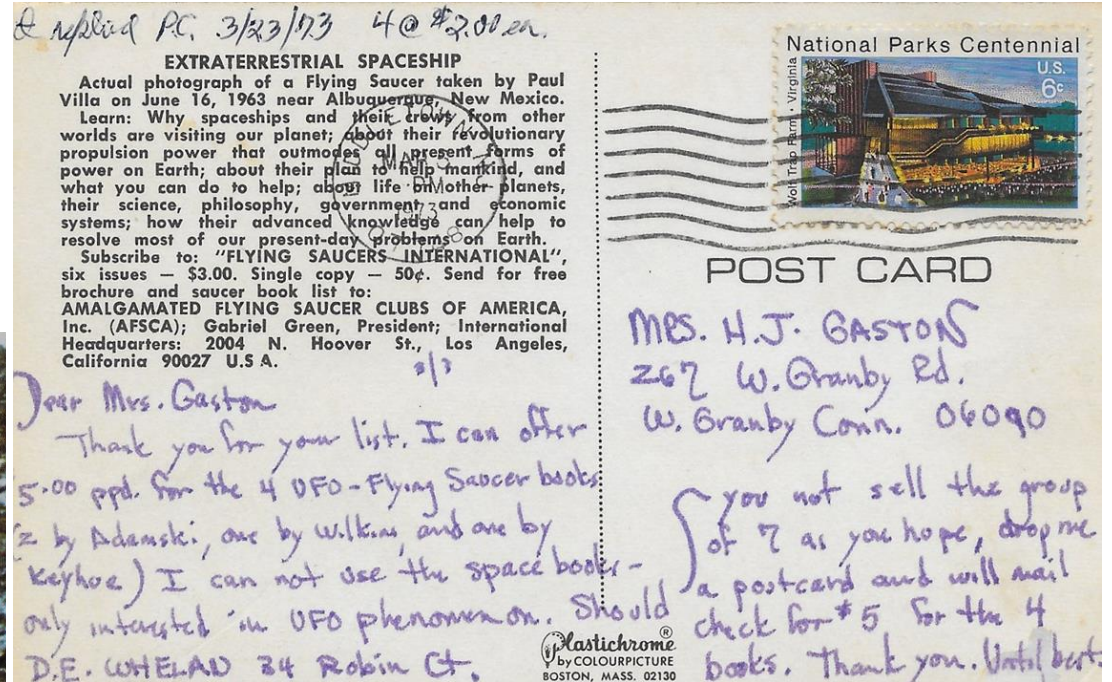 replied P.C. 3/23/73 4 @ $2.00 ea.
EXTRATERRESTRIAL SPACESHIP
Actual photograph of a Flying Saucer taken by Paul
Villa on June 16, 1963 near Albuquerque, New Mexico.
Learn: Why spaceships and their crews from other
worlds are visiting our planet; about their revolutionary
propulsion power that outmodes all present forms of
power on Earth; about their plan to help mankind, and
what you can do to help; about life on other planets,
their science, philosophy, government and economic
systems; how their advanced knowledge can help to
resolve most of our present-day problems on Earth.
Subscribe to: "FLYING SAUCERS INTERNATIONAL",
six issues — $3.00. Single copy — 50¢. Send for free
brochure and saucer book list to:
AMALGAMATED FLYING SAUCER CLUBS OF AMERICA,
Inc. (AFSCA); Gabriel Green, President; International
Headquarters: 2004 N. Hoover St., Los Angeles,
California 90027 U.S.A.
Dear Mrs. Gaston
Thank you for your list. I can offer
5.00 ppd. for the 4 UFO-Flying Saucer books
(2 by Adamski, one by Wilkins, and one by
Keyhoe) I can not use the space books-
only interested in UFO phenomenon. Should
D.E. WHELAN 34 Robin Ct.
Plastichrome®
by COLOURPICTURE
BOSTON, MASS. 02130
National Parks Centennial
U.S.
6c
Wolf Trap Farm, Virginia
MAR
PM
1973
POST CARD
MRS. H.J. GASTON
267 W. Granby Rd.
W. Granby Conn. 06090
you not sell the group
of 7 as you hope, drop me
a postcard and will mail
check for $5 for the 4
books. Thank you. Until best.